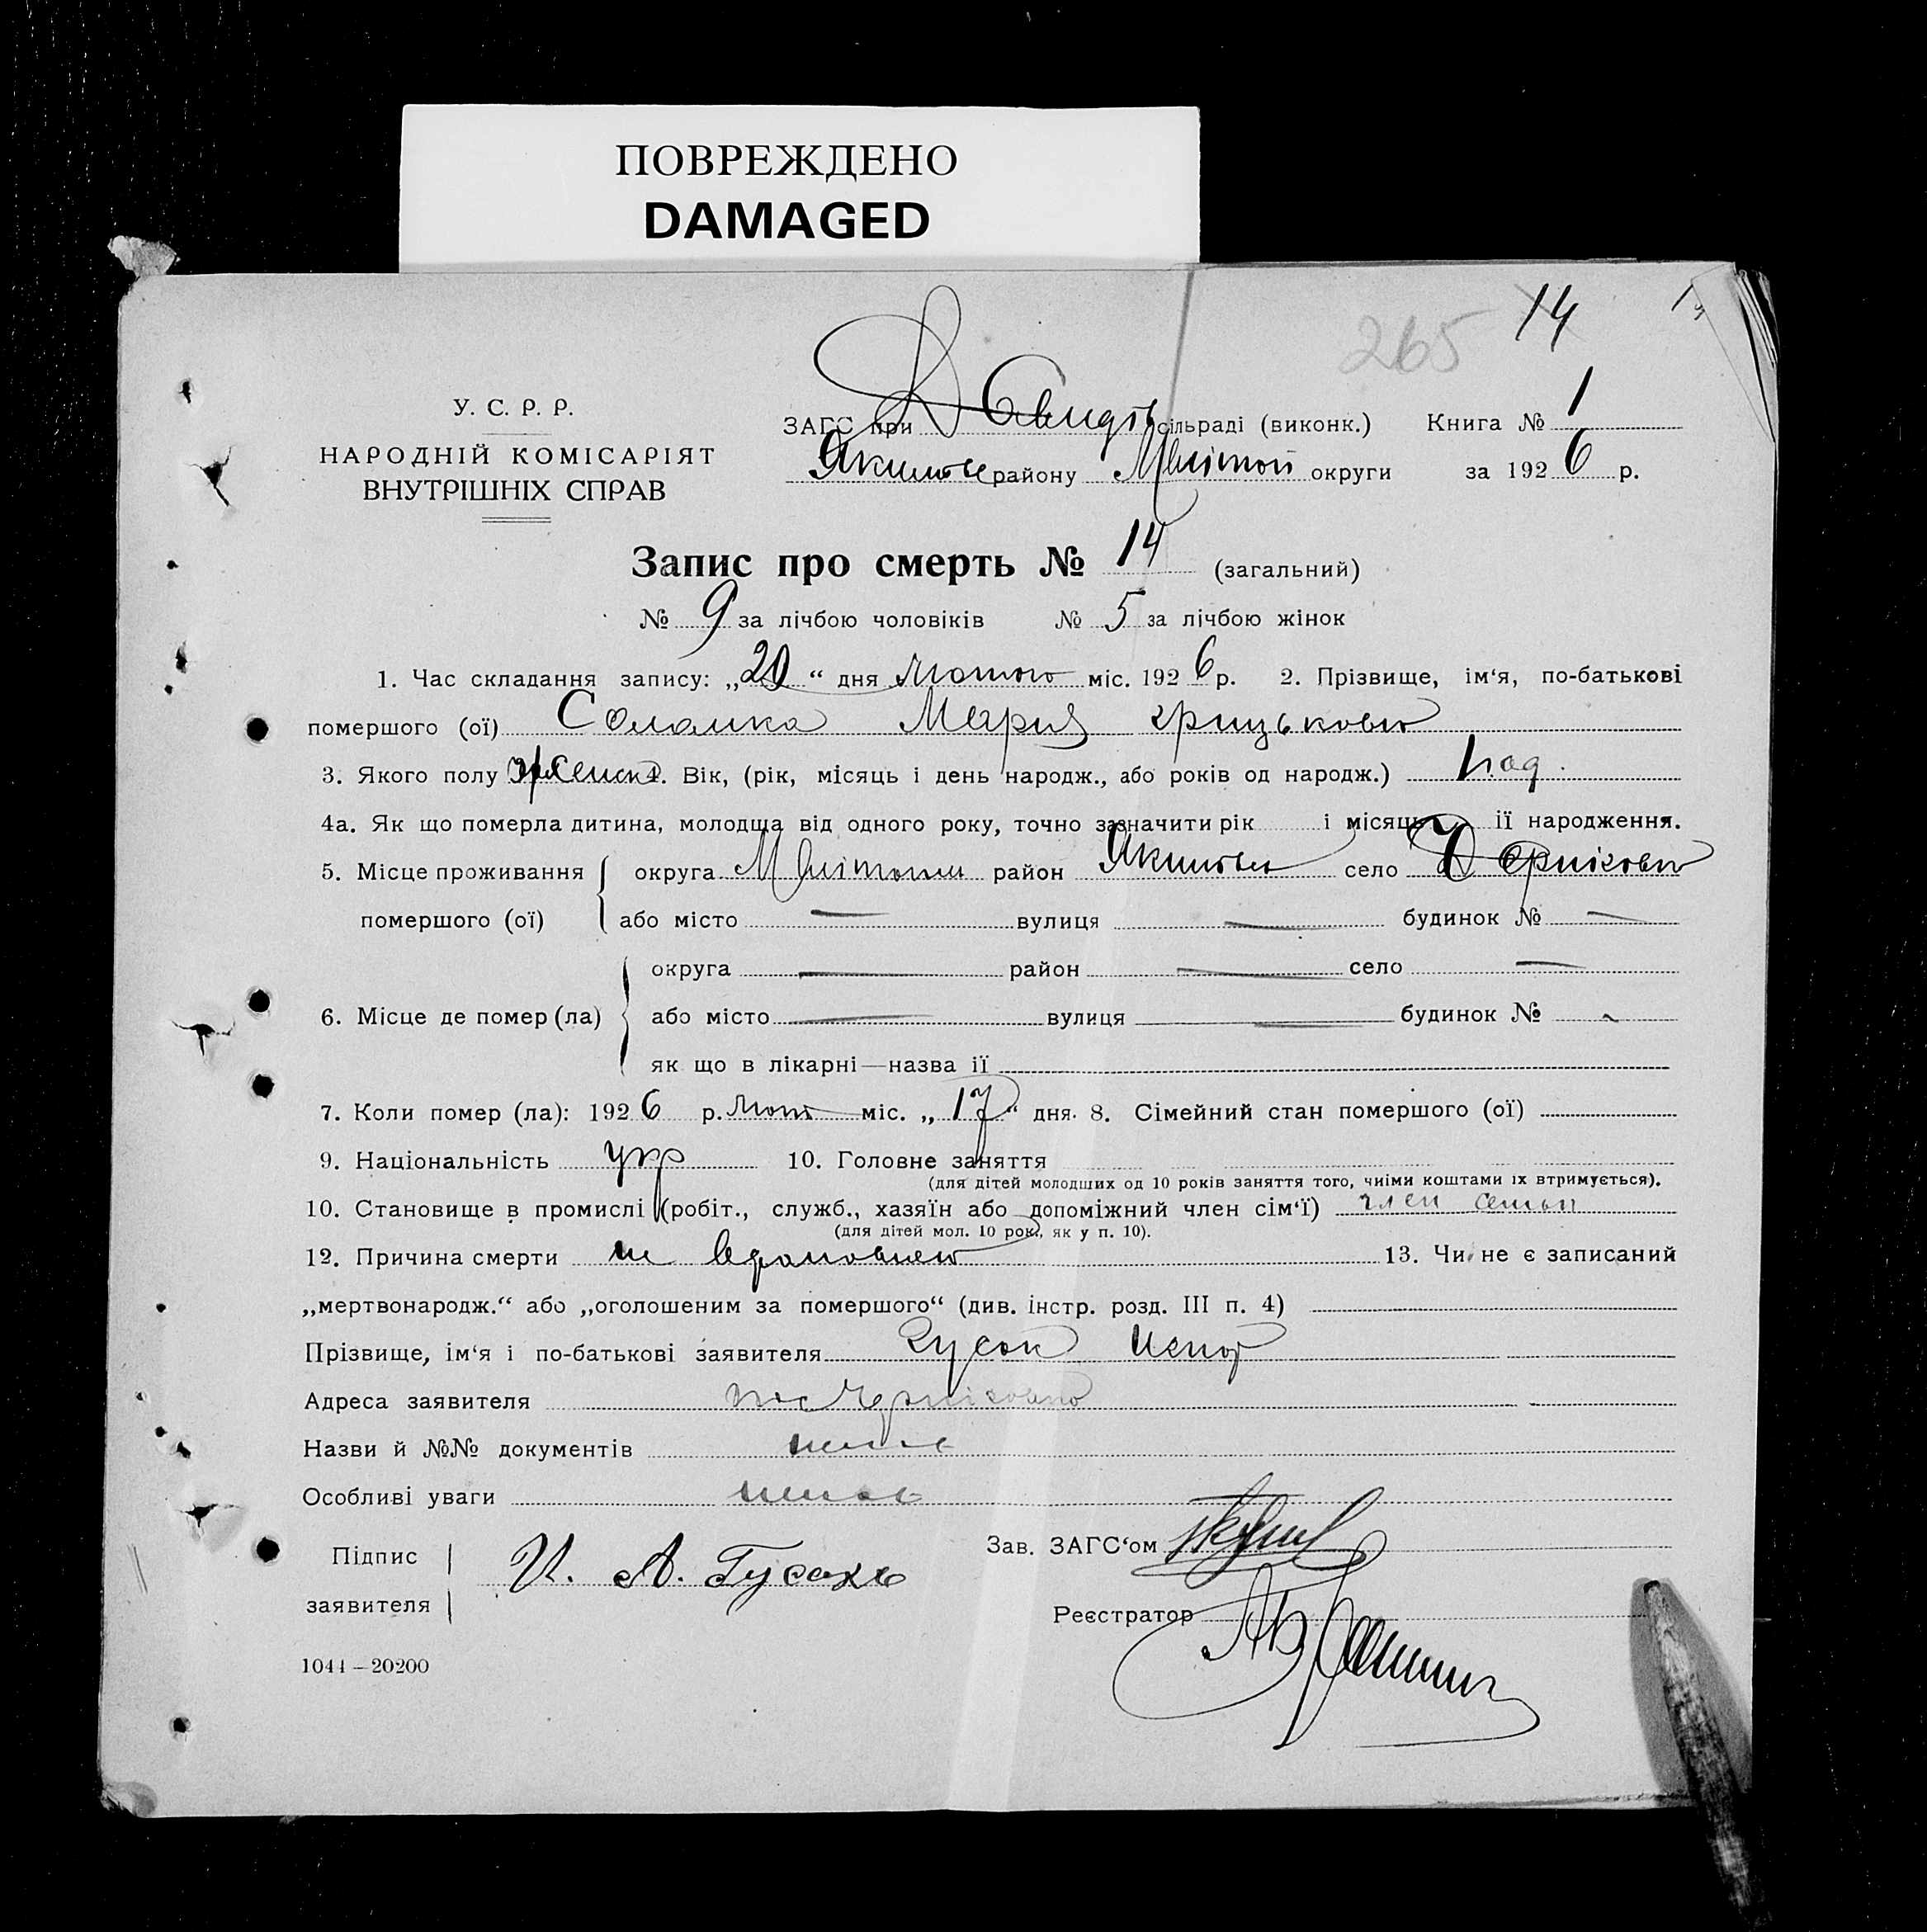 ПОВРЕЖДЕНО
DAMAGED
265 14
У. С. Р. Р.
НАРОДНІЙ КОМІСАРІЯТ
ВНУТРІШНІХ СПРАВ
ЗАГС при сільраді (виконк.) Книга № 1
району округи за 1926 р.
Запис про смерть № 14 (загальний)
№ 9 за лічбою чоловіків № 5 за лічбою жінок
1. Час складання запису: „20“ дня Лютого міс. 1926 р. 2. Прізвище, ім‘я, по-батькові
помершого (ої) Соломка Мария
3. Якого полу 4. Вік, (рік, місяць і день народж., або років од народж.)
4а. Як що померла дитина, молодща від одного року, точно зазначити рік і місяць ії народження.
5. Місце проживання округа район село
помершого (ої) або місто — вулиця — будинок № —
округа — район — село —
6. Місце де помер (ла) або місто — вулиця — будинок №
як що в лікарні—назва ії
7. Коли помер (ла): 1926 р. Лют міс. „17“ дня. 8. Сімейний стан помершого (ої)
9. Національність укр 10. Головне заняття
(для дітей молодших од 10 років заняття того, чиїми коштами іх втримується).
10. Становище в промислі (робіт., служб., хазяїн або допоміжний член сім‘ї) член семьи
(для дітей мол. 10 рок., як у п. 10).
12. Причина смерти 13. Чи не є записаний
„мертвонародж.“ або „оголошеним за помершого“ (див. інстр. розд. III п. 4)
Прізвище, ім‘я і по-батькові заявителя Гусак
Адреса заявителя
Назви й №№ документів нема
Особливі уваги нема
Підпис
заявителя И. А. Гусакъ
Зав. ЗАГС‘ом
Реєстратор
1044—20200